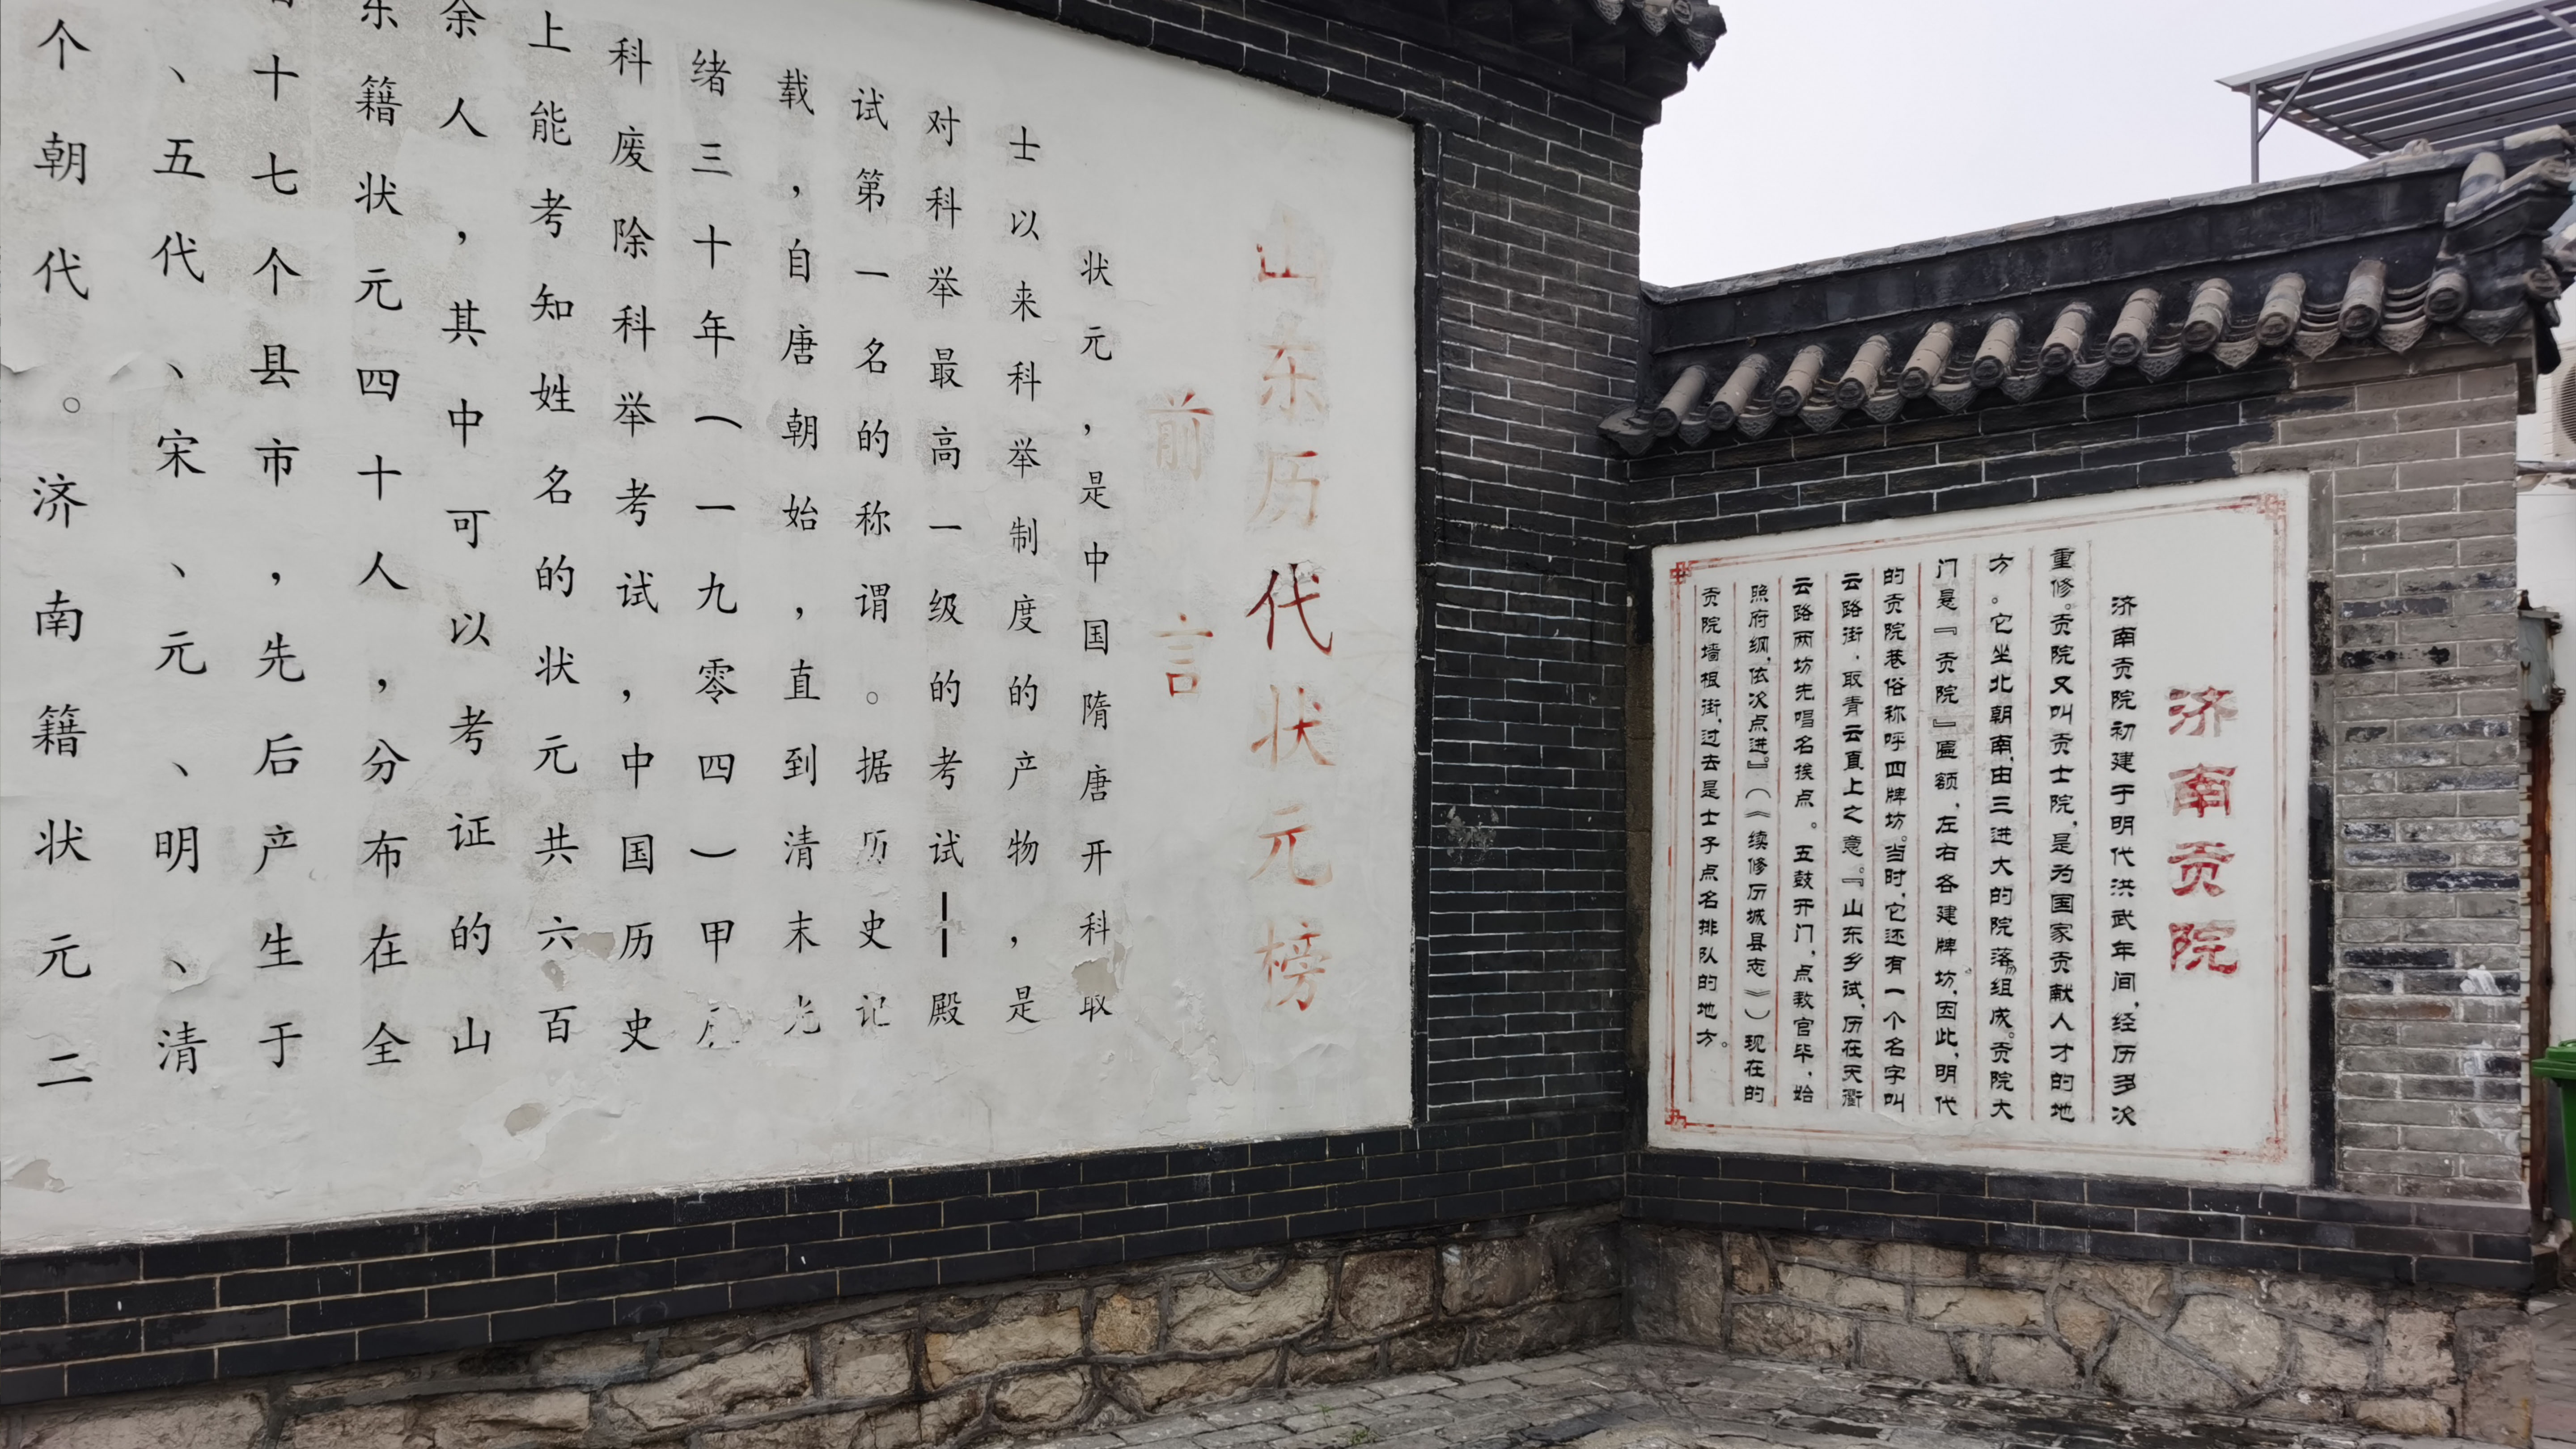 山东历代状元榜
前言
状元，是中国隋唐开科取
士以来科举制度的产物，是
对科举最高一级的考试——殿
试第一名的称谓。据历史记
载，自唐朝始，直到清末光
绪三十年（一九零四）甲
科废除科举考试，中国历史
上能考知姓名的状元共六百
余人，其中可以考证的山
东籍状元四十人，分布在全
十七个县市，先后产生于
、五代、宋、元、明、清
个朝代。济南籍状元二
济南贡院
济南贡院初建于明代洪武年间，经历多次
重修。贡院又叫贡士院，是为国家贡献人才的地
方。它坐北朝南，由三进大的院落组成。贡院大
门悬『贡院』匾额，左右各建牌坊，因此，明代
的贡院巷俗称呼四牌坊。当时，它还有一个名字叫
云路街，取青云直上之意。『山东乡试，历在天衢
云路两坊先唱名挨点。五鼓开门，点教官毕，始
照府纲，依次点进。』（《续修历城县志》）现在的
贡院墙根街，过去是士子点名排队的地方。